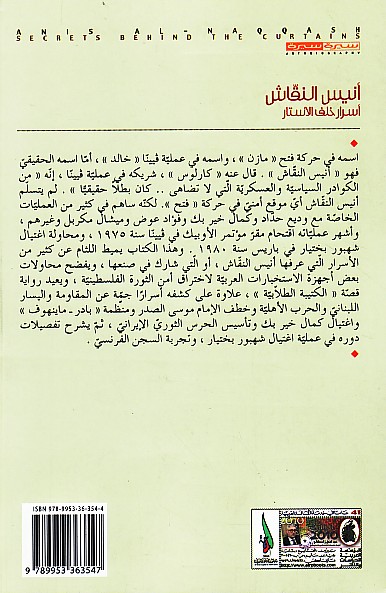 ANIS AL-NAQQASH
SECRETS BEHIND THE CURTAINS
سيرة سيرة
AUTOBIOGRAPHY
أنيس النقّاش
أسرار خلف الاستار
اسمه في حركة فتح «مازن» ، واسمه في عمليّة ڤيينّا «خالد» ، أمّا اسمه الحقيقيّ
فهو «أنيس النقّاش» . قال عنه «كارلوس» ، شريكه في عمليّة ڤيينّا ، إنّه «من
الكوادر السياسيّة والعسكريّة الّتي لا تضاهى .. كان بطلًا حقيقيًّا» . لم يتسلّم
أنيس النقّاش أيّ موقع أمنيّ في حركة «فتح» . لكنّه ساهم في كثير من العمليّات
الخاصّة مع وديع حدّاد وكمال خير بك وفؤاد عوض وميشال مكربل وغيرهم ،
وأشهر عمليّاته اقتحام مقرّ مؤتمر الأوبيك في ڤيينّا سنة ١٩٧٥ ، ومحاولة اغتيال
شهبور بختيار في باريس سنة ١٩٨٠ . وهذا الكتاب يميط اللثام عن كثير من
الأسرار الّتي عرفها أنيس النقّاش ، أو الّتي شارك في صنعها ، ويفضح محاولات
بعض أجهزة الاستخبارات العربيّة لاختراق أمن الثورة الفلسطينيّة ، ويعيد رواية
قصّة «الكتيبة الطلّابيّة» ، علاوة على كشفه أسرارًا جمّة عن المقاومة واليسار
اللبنانيّ والحرب الأهليّة وخطف الإمام موسى الصدر ومنظّمة «بادر - ماينهوف»
واغتيال كمال خير بك وتأسيس الحرس الثوريّ الإيرانيّ ، ثمّ يشرح تفصيلات
دوره في عمليّة اغتيال شهبور بختيار ، وتجربة السجن الفرنسيّ .
ISBN 978-9953-36-354-7
9 789953 363547
2010